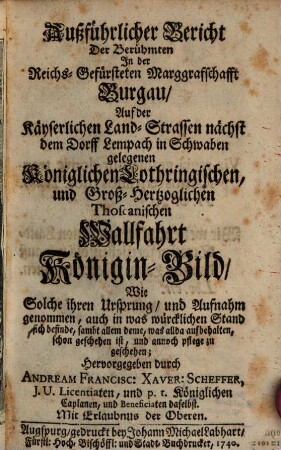 Außführlicher Bericht
Der Berühmten
In der
Reichs-Gefürsteten Marggrafschafft
Burgau/
Auf der
Käyserlichen Land-Strassen nächst
dem Dorff Lempach in Schwaben
gelegenen
Königlichen Lothringischen,
und Groß-Hertzoglichen
Thoscanischen
Wallfahrt
Königin-Bild/
Wie
Solche ihren Ursprung/ und Aufnahm
genommen, auch in was würcklichen Stand
sich befinde, sambt allem deme, was allda aufbehalten,
schon geschehen ist, und annoch pflege zu
geschehen;
Hervorgegeben durch
ANDREAM FRANCISC: XAVER: SCHEFFER,
J. U. Licentiaten, und p. t. Königlichen
Caplanen, und Beneficiaten daselbst.
Mit Erlaubnus der Oberen.
Augspurg/ gedruckt bey Johann Michael Labhart,
Fürstl: Hoch-Bischöffl: und Stadt-Buchdrucker, 1740.